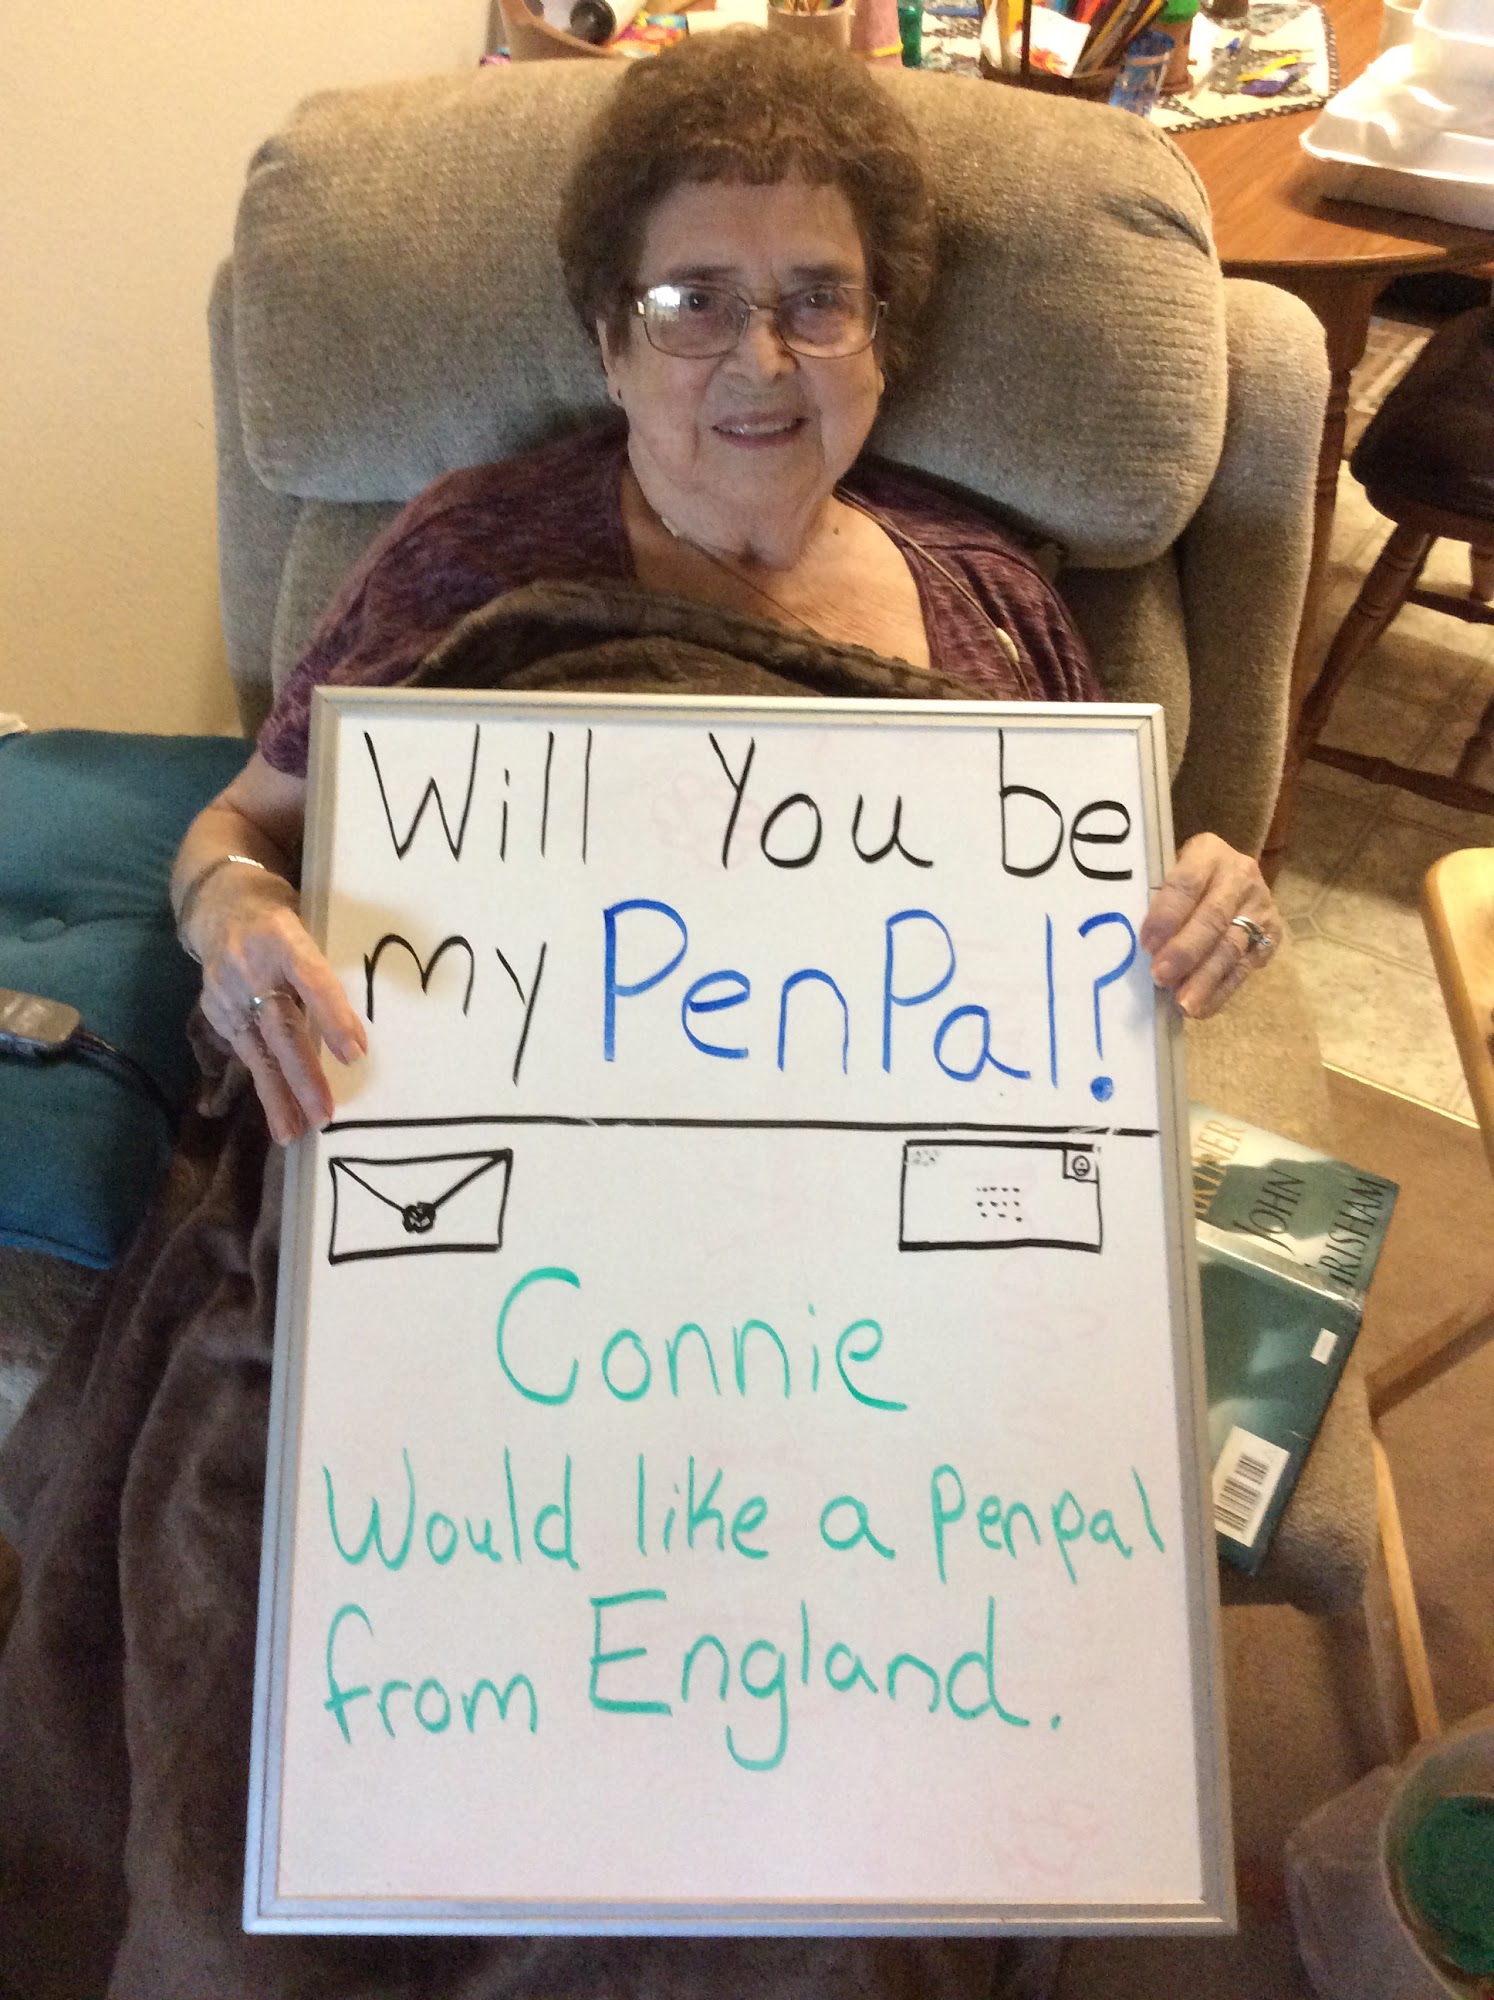 Will You be
my PenPal?
Connie
Would like a Penpal
from England.
JOHN
GRISHAM